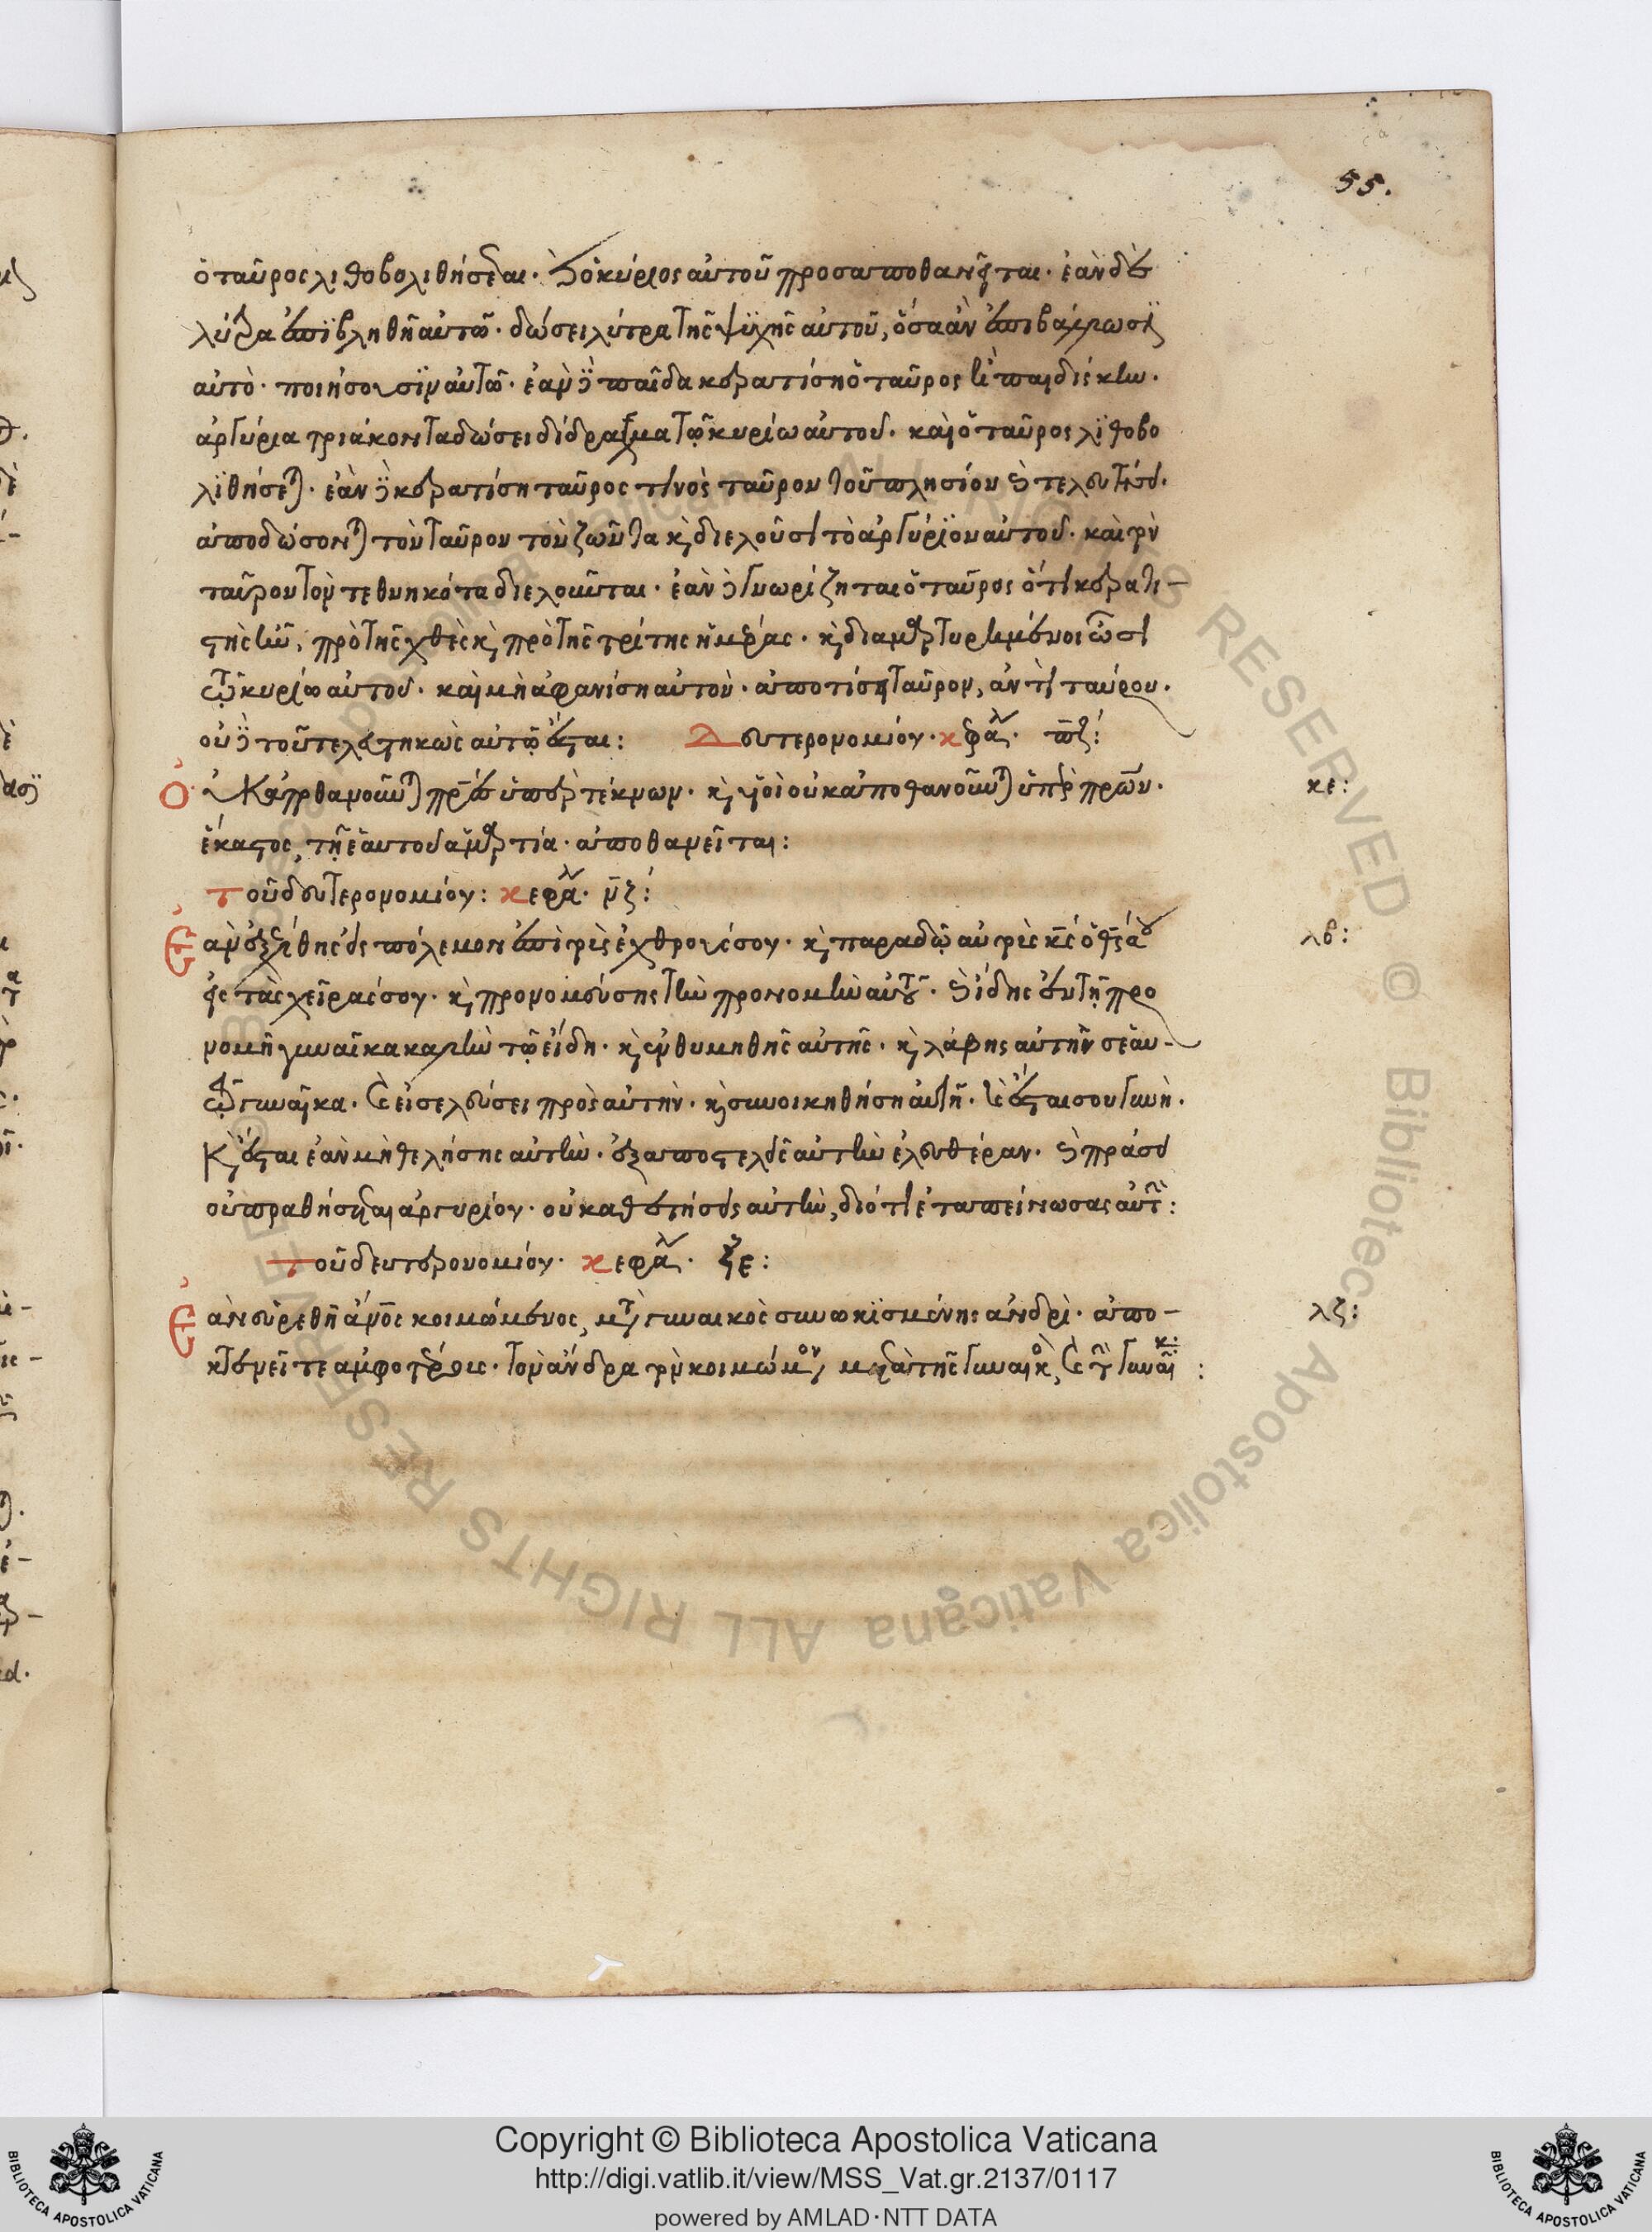 55.
ὁ ταῦρος λιθοβολιθήσεται· καὶ ὁ κύριος αὐτοῦ προσαποθανεῖται· ἐὰν δὲ
λύτρα ἐπιβληθῆ αὐτῶ· δώσει λύτρα τῆς ψυχῆς αὐτοῦ, ὅσα ἂν ἐπιβάλωσϊ
αὐτὸ· ποιήσουσϊν αὐτῶ· ἐὰν δὲ παῖδα κερατίση ὁ ταῦρος ἢ παιδίσκην·
ἀργύρια τριάκοντα δώσει δίδραχμα τῶ κυρίω αὐτοῦ· καὶ ὁ ταῦρος λϊθοβο
λϊθήσεται· ἐὰν δὲ κερατίση ταῦρος τινὸς ταῦρον τοῦ πλησίον καὶ τελευτήσει·
ἀποδώσονται τὸν ταῦρον τὸν ζῶντα καὶ διελοῦσι τὸ ἀργύρϊον αὐτοῦ· καὶ τὸν
ταῦρον τὸν τεθνηκότα διελοῦνται· ἐὰν δὲ γνωρίζηται ὁ ταῦρος ὅτι κερατι-
στής ἦν, πρὸ τῆς χθὲς καὶ πρὸ τῆς τρίτης ἡμέρας· καὶ διαμαρτυρημένοι ὦσι
τῶ κυρίω αὐτοῦ· καὶ μὴ ἀφανίση αὐτὸν· ἀποτίσει ταῦρον, ἀντὶ ταύρου·
ὁ δὲ τετελευτηκὼς αὐτῶ ἔσται: Δευτερονομίου· κεφάλ·
κε:
Οὐκ ἀποθανοῦνται πρ̅ες ὑπὲρ τέκνων· καὶ υἱοὶ οὐκ ἀποθανοῦνται ὑπὲρ πρ̅ων·
ἕκαστος, τῆ ἑαυτοῦ ἁμαρτία· ἀποθανεῖται:
Τοῦ δευτερονομίου: κεφάλ· ν̅ζ:
λβ:
Ἐὰν ἐξέλθης εἰς πόλεμον ἐπὶ τοὺς ἐχθρούς σου· καὶ παραδῶ αὐτοὺς κ̅ς ὁ θ̅ς σου
εἰς τὰς χεῖρας σου· καὶ προνομεύσης τὴν προνομὴν αὐτῶν· καὶ ἴδης ἐν τῆ προ
νομῆ γυναῖκα καλὴν τῶ εἴδει· καὶ ἐνθυμηθῆς αὐτῆς· καὶ λάβης αὐτὴν σεαυ-
τῶ γυναῖκα· καὶ εἰσελεύσει πρὸς αὐτὴν· καὶ συνοικηθήση αὐτῆ· καὶ ἔσται σου γυνή·
Κ̀ ἔσται ἐὰν μὴ θελήσης αὐτὴν· ἐξαποστελεῖς αὐτὴν ἐλευθέραν· καὶ πράσει
οὐ πραθήσεται ἀργυρίου· οὐκ ἀθετήσεις αὐτὴν, διότι ἐταπείνωσας αὐτὴν:
Τοῦ δευτερονομίου· κεφάλ· ξε:
λζ:
Ἐὰν εὑρεθῆ ἄν̅ος κοιμώμενος, μετὰ γυναικὸς συνωκϊσμένης ἀνδρὶ· ἀπο-
κτενεῖτε ἀμφοτέρους· τὸν ἄνδρα τὸν κοιμώμενον μετὰ τῆς γυναικὸς, καὶ τὴν γυναῖκα:
Copyright © Biblioteca Apostolica Vaticana
http://digi.vatlib.it/view/MSS_Vat.gr.2137/0117
powered by AMLAD·NTT DATA
BIBLIOTECA APOSTOLICA VATICANA
BIBLIOTECA APOSTOLICA VATICANA